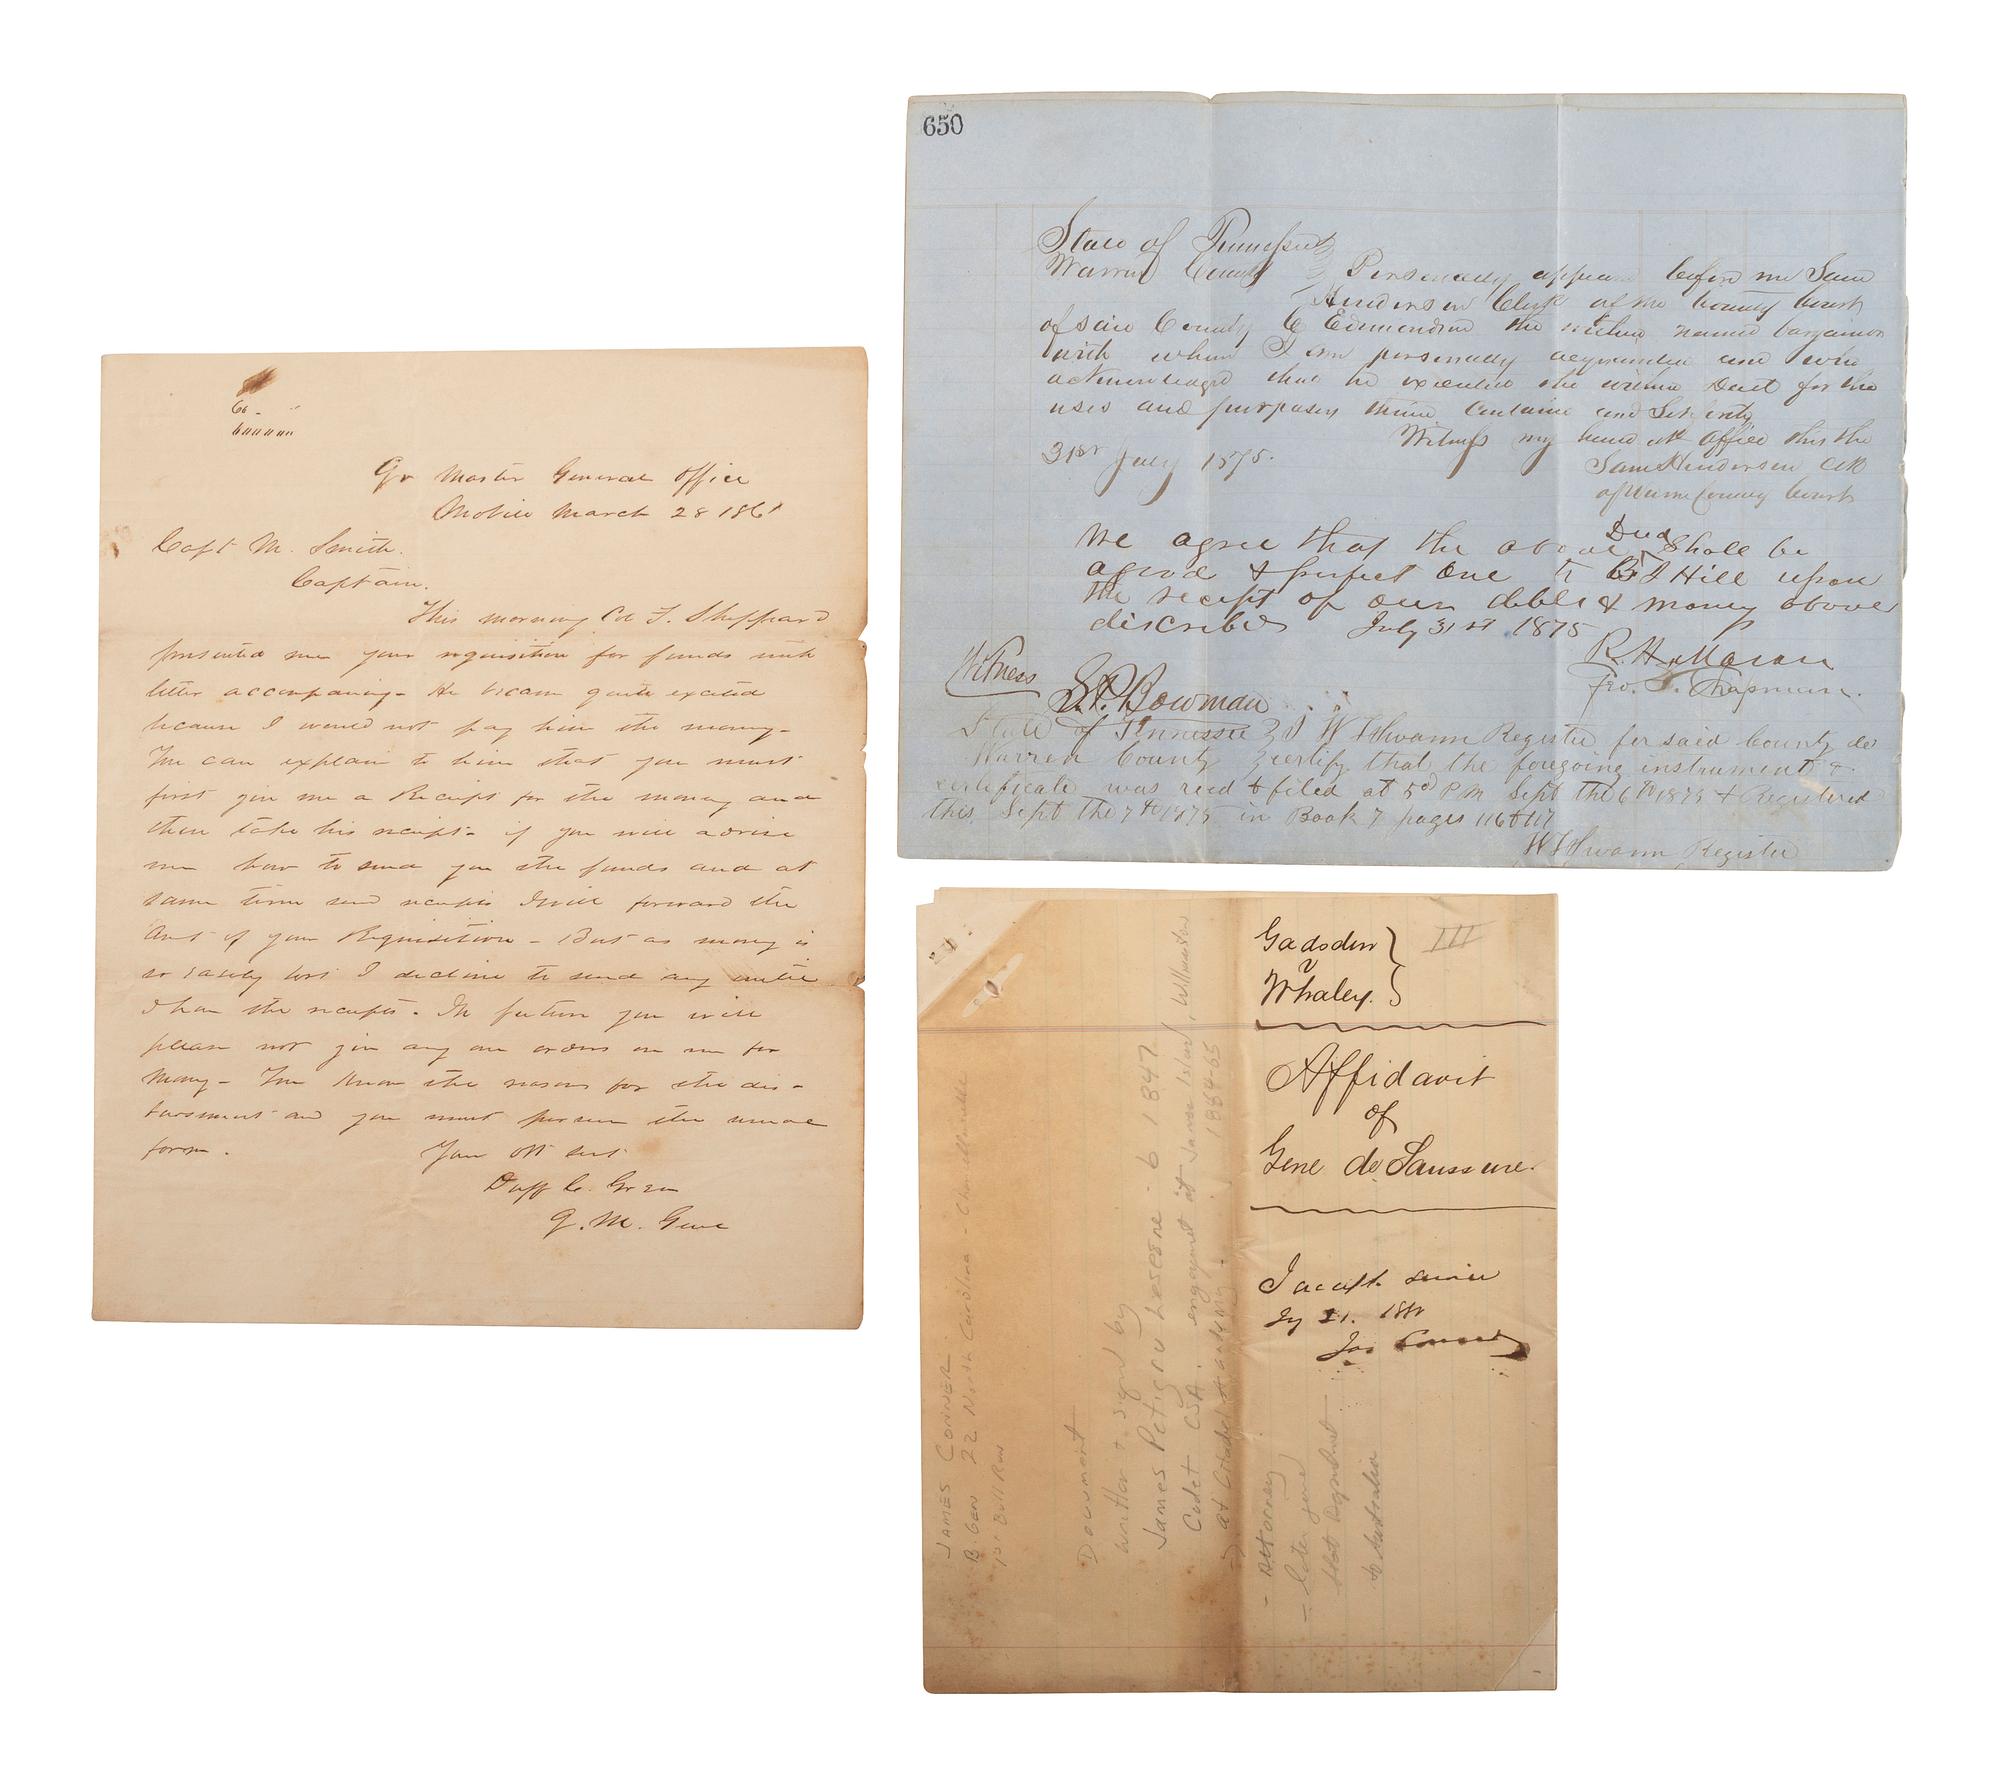 Qr Master General Office
Mobile March 28 1861
Capt M. Smith.
Captain.
This morning Col T. Sheppard
presented me your requisition for funds with
letter accompanying - He became quite excited
because I would not pay him the money -
You can explain to him that you must
first give me a Receipt for the money and
then take his receipt - if you will advise
me how to send you the funds and at
same time send receipts I will forward the
Amt of your Requisition - But as money is
so easily lost I decline to send any until
I have the receipts - In future you will
please not give any one orders on me for
Money - You know the reasons for the dis-
bursement and you must pursue the usual
form.
Your obt sert
Duff C. Green
Q. M. Genl
650
State of Tennessee
Warren County } Personally appeared before me Sam
Henderson Clerk of the County Court
of said County C Edmondson the within named bargainor
with whom I am personally acquainted and who
acknowledged that he executed the within Deed for the
uses and purposes therein contained and Set forth
Witness my hand at office this the
31st July 1875.
Sam Henderson Clk
of Warren County Court
We agree that the above Deed Shall be
a good & perfect one to B J Hill upon
the receipt of our debts & money above
described July 31st 1875
R. H. Mason
Geo. T. Chapman.
Witness S. P. Bowman
State of Tennessee } I W T Swann Register for said County do
Warren County } certify that the foregoing instrument &
certificate was recd & filed at 5 P M Sept the 6th 1875 & Registered
this Sept the 7th 1875 in Book 7 pages 116 & 117
W T Swann Register
Gadsden
v
Whaley.
III
Affidavit
of
Gene de Saussure.
I accept service
Jy 21.
Jas Conner
JAMES CONNER
B. Gen 22 North Carolina - Chancellorsville
1st Bull Run
Document
written & signed by
James Petigru Lesesne - 6 1847
Cadet CSA. engagement at James Island,
at Citadel Academy.
- Attorney
- later
State Department
to Australia